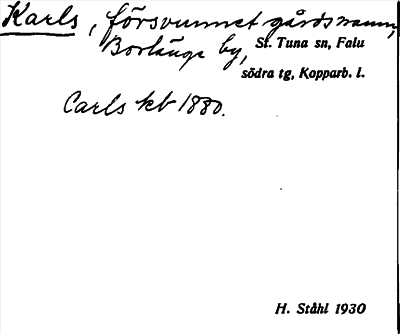 Karls, försvunnet gårdsnamn,
Borlänge by, St. Tuna sn, Falu
södra tg, Kopparb. l.
Carls kb 1880.
H. Ståhl 1930